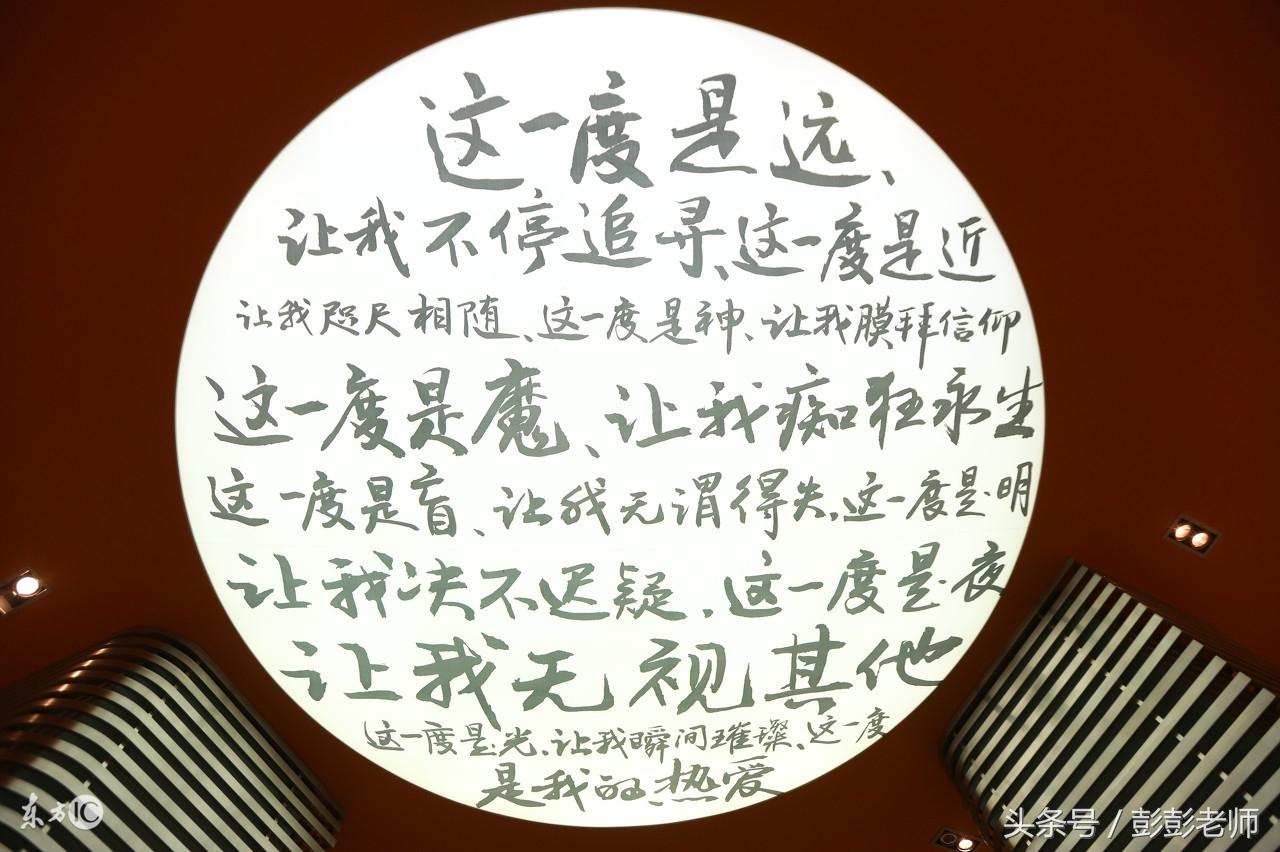 这一度是远、
让我不停追寻、这一度是近
让我咫尺相随、这一度是神、让我膜拜信仰
这一度是魔、让我痴狂永生
这一度是盲、让我无谓得失、这一度是明
让我决不迟疑、这一度是夜
让我无视其他
这一度是光、让我瞬间璀璨、这一度
是我的热爱
东方IC
头条号 / 彭彭老师